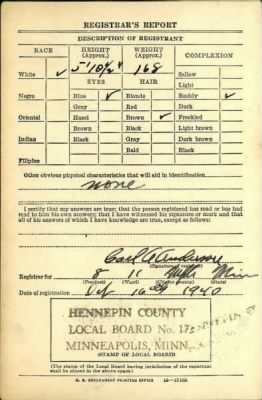 REGISTRAR'S REPORT
DESCRIPTION OF REGISTRANT
RACE HEIGHT (Approx.) WEIGHT (Approx.) COMPLEXION
5' 10½" 168
White ✓ Sallow
EYES HAIR Light
Negro Blue ✓ Blonde Ruddy ✓
Gray Red Dark
Oriental Hazel Brown ✓ Freckled
Brown Black Light brown
Indian Black Gray Dark brown
Bald Black
Filipino
Other obvious physical characteristics that will aid in identification
none
I certify that my answers are true; that the person registered has read or has had
read to him his own answers; that I have witnessed his signature or mark and that
all of his answers of which I have knowledge are true, except as follows:
Carl A Anderson
Registrar for 8 11 Mpls Minn
(Precinct) (Ward) (City or county) (State)
Date of registration Oct 16th 1940
HENNEPIN COUNTY
LOCAL BOARD No. 17
MINNEAPOLIS, MINN.
(STAMP OF LOCAL BOARD)
(The stamp of the Local Board having jurisdiction of the registrant
shall be placed in the above space.)
U. S. GOVERNMENT PRINTING OFFICE 16—17105